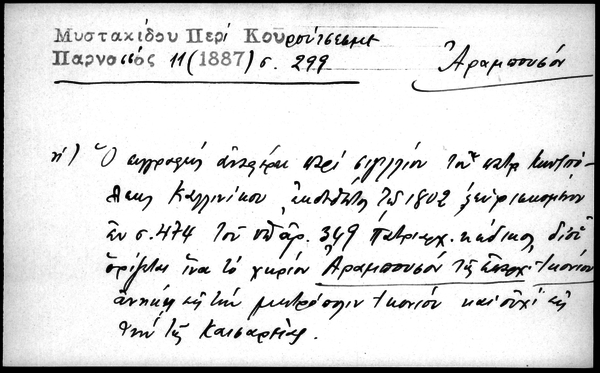 Μυστακίδου Περί Κουρούτσεσμε
Παρνασσός 11 (1887) σ. 299
Ἀραμπουσόν
η) Ὁ συγγραφεύς ἀναφέρει περί σιγιλλίου τοῦ πατρ. Κων/πό-
λεως Καλλινίκου ἐκδοθέντος τῷ 1802 εὑρισκομένου
ἐν σ. 474 τοῦ ὑπ' ἀρ. 349 πατριαρχ. κώδικος δι' οὗ
ὁρίζεται ἵνα τό χωρίον Ἀραμπουσόν τῆς ἐπαρχ. Ἰκονίου
ἀνήκῃ εἰς τήν μητρόπολιν Ἰκονίου καί οὐχί εἰς
τήν τῆς Καισαρείας.